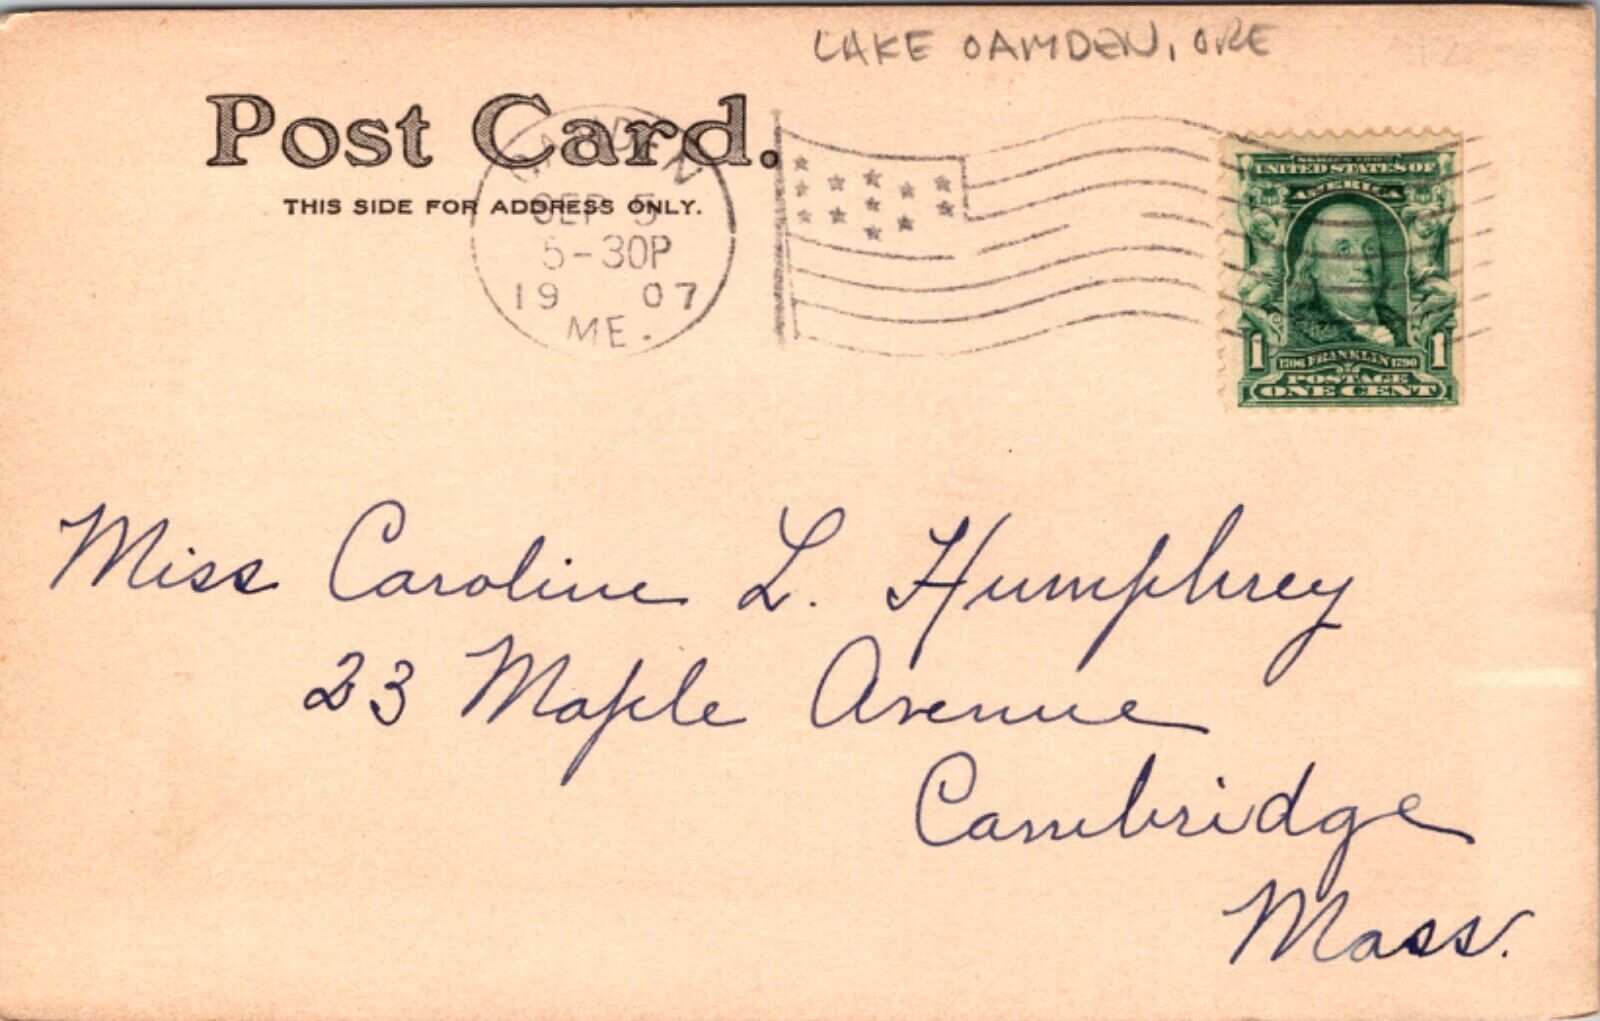 LAKE OAMDEN, ORE
Post Card.
THIS SIDE FOR ADDRESS ONLY.
CAMDEN
SEP 5
5-30P
19 07
ME.
SERIES 1902
UNITED STATES OF
AMERICA
1 1706 FRANKLIN 1790 1
POSTAGE
ONE CENT
Miss Caroline L. Humphrey
23 Maple Avenue
Cambridge
Mass.